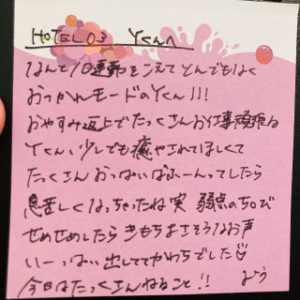 HOTEL 03 Yくんへ
なんと10連勤をこえてとんでもなく
おつかれモードのYくん!!!
おやすみ返上でたっくさんお仕事頑張る
Yくん、少しでも癒やされてほしくて
たっくさんおっぱいばふーんってしたら
息苦しくなっちゃったね笑 弱点のちくび
せめせめしたらきもちよさそうなお声
いーっぱい出しててかわちでした♡
今日はたっくさんねること!!